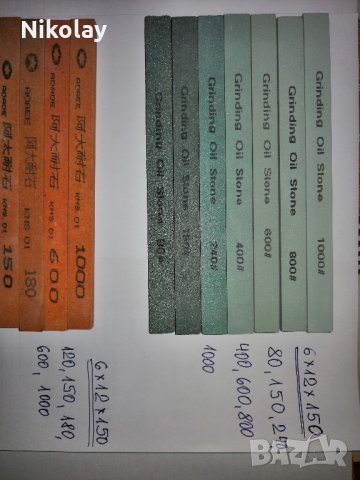 Nikolay
AOGEE 阿大耐石 KMS 01 150
AOGEE 阿大耐石 KMS 01 180
AOGEE 阿大耐石 KMS 01 600
AOGEE 阿大耐石 KMS 01 1000
Grinding Oil Stone 80#
Grinding Oil Stone
Grinding Oil Stone 240#
Grinding Oil Stone 400#
Grinding Oil Stone 600#
Grinding Oil Stone 800#
Grinding Oil Stone 1000#
6 x 12 x 150
80, 150, 240
400, 600, 800
1000
6 x 12 x 150
120, 150, 180,
600, 1000
bazar